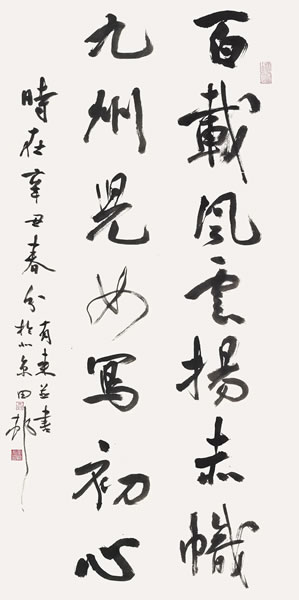 百載風雲揚赤幟
九州児女寫初心
時在辛丑春分
有来並書
於北京田邨